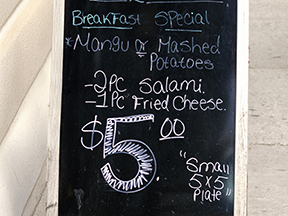 BreakFast Special
*Mangu or Mashed
Potatoes
-2PC Salami.
-1PC Fried Cheese.
$5.00
"Small
5x5
Plate"